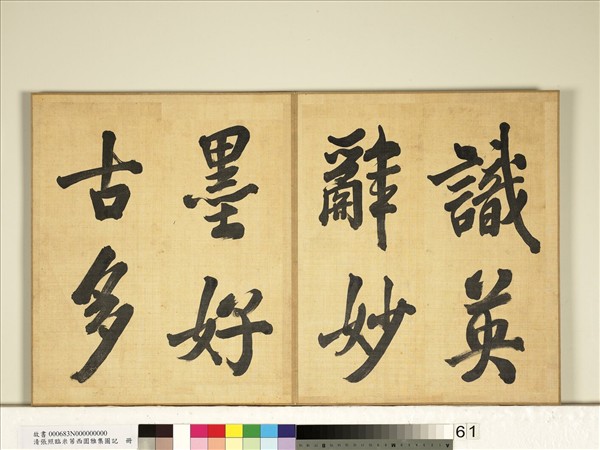 識英
辭妙
墨好
古多
故書 000683N000000000
清張照臨米芾西園雅集圖記 冊
61